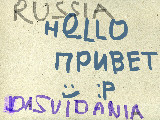 RUSSIA
HELLO
ПРИВЕТ
:P
DASVIDANIA